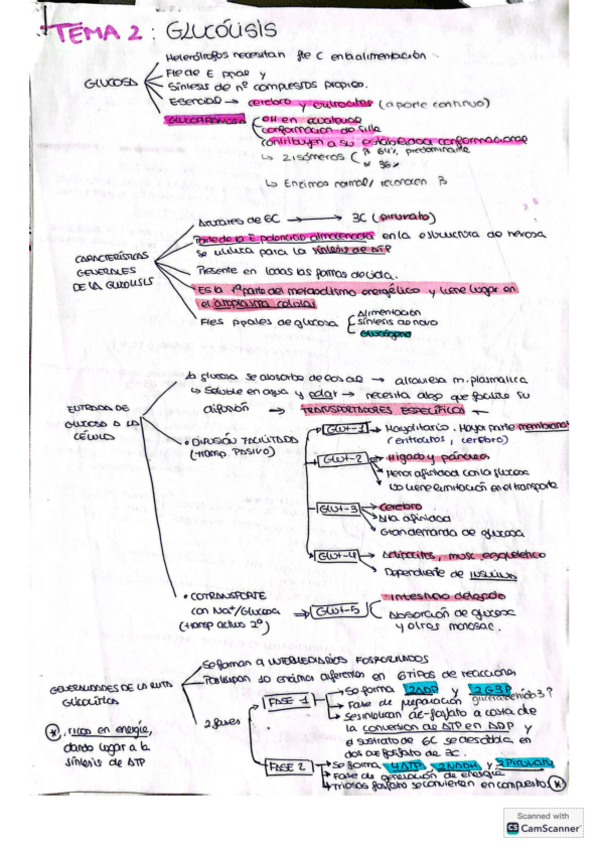 TEMA 2: GLUCÓLISIS
Heterótrofos necesitan fte C en la alimentación
GLUCOSA
Fte de E ppal y
Síntesis de nº compuestos propios.
Esencial → cerebro y eritrocitos (aporte continuo)
GLUCOPIRANOSA
OH en ecuatorial
conformación de silla
contribuyen a su estabilidad conformacional
↳ 2 isómeros
β 64% predominante
α 36%
↳ Enzimas normal/ reconocen β
CARACTERÍSTICAS GENERALES DE LA GLUCÓLISIS
Azúcares de 6C → 3C (piruvato)
Parte de la E potencial almacenada en la estructura de hexosa
se utiliza para la síntesis de ATP
Presente en todas las formas de vida.
Es la 1ª parte del metabolismo energético y tiene lugar en
el citoplasma celular
Ftes ppales de glucosa
Alimentación
síntesis de novo
Glucógeno
ENTRADA DE GLUCOSA A LA CÉLULA
La glucosa se absorbe → atraviesa m. plasmática
↳ Soluble en agua y polar → necesita algo que facilite su
difusión → TRANSPORTADORES ESPECÍFICOS
• DIFUSIÓN FACILITADA
(transp. PASIVO)
Glut-1 → Mayoritario. Mayor parte membranas
(eritrocitos, cerebro)
Glut-2 → Hígado y páncreas
Menor afinidad con la glucosa
No tiene limitación en el transporte
Glut-3 → Cerebro
Alta afinidad
Gran demanda de glucosa
Glut-4 → Adipocitos, musc. esquelético
Dependiente de INSULINA
• COTRANSPORTE
con Na+/Glucosa
(transp activo 2º)
Glut-5
Intestino delgado
Absorción de glucosa
y otros monosac.
GENERALIDADES DE LA RUTA GLUCOLÍTICA
Se forman 9 INTERMEDIARIOS FOSFORILADOS
Participan 10 enzimas diferentes en 6 tipos de reacciones
2 fases
FASE 1
Se forma 2ADP y 2G3P
Fase de preparación
de fosfato a costa de
la conversión de ATP en ADP y
el sustrato de 6C se desdobla en
dos de fosfato de 3C.
FASE 2
Se forma 4ATP, 2NADH y 2Piruvato
Fase de generación de energía
Triosas fosfato se convierten en compuestos (*)
(*) ricos en energía,
dando lugar a la
síntesis de ATP
Scanned with
CS CamScanner